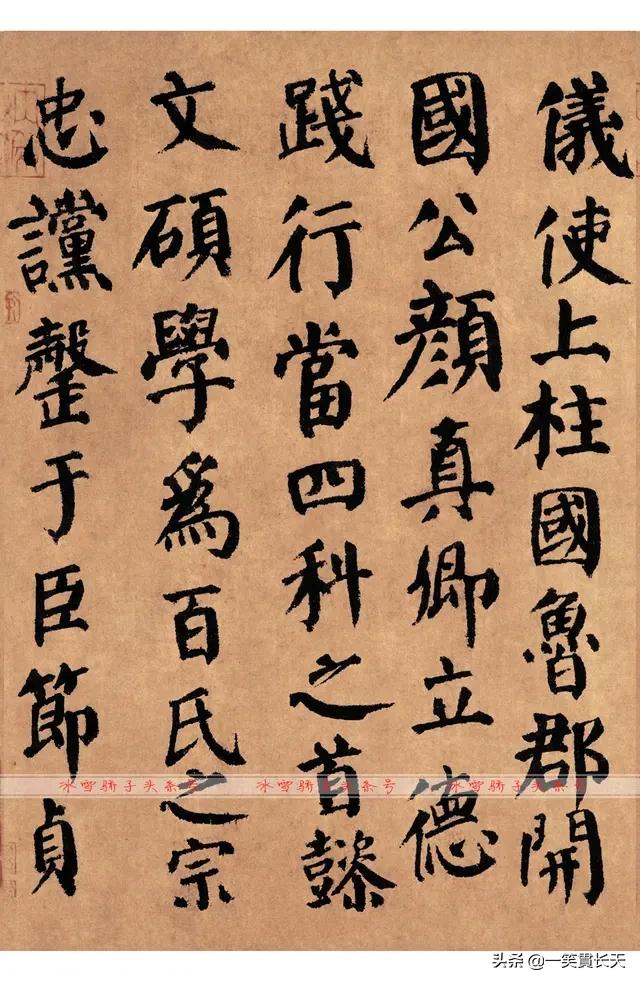 儀使上柱國魯郡開
國公顔真卿立德
踐行當四科之首懿
文碩學爲百氏之宗
忠讜罄于臣節貞
冰雪骄子头条号 冰雪骄子头条号 冰雪骄子头条号
头条 @一笑貫长天